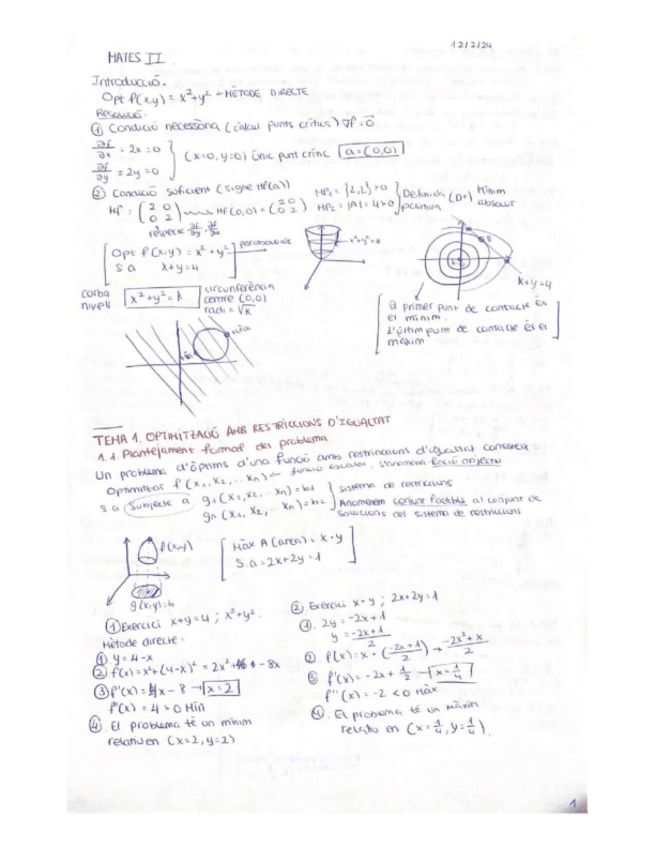 12/2/24
MATES II
Introducció.
Opt f(x,y) = x²+y² → MÈTODE DIRECTE
Resolució:
① Condició necessària (càlcul punts crítics) ∇f = 0⃗
∂f/∂x = 2x = 0
∂f/∂y = 2y = 0
(x=0, y=0) únic punt crític a = (0,0)
② Condició suficient (signe Hf(a))
Hf = (2 0 / 0 2) Hf(0,0) = (2 0 / 0 2)
HP₁ = {2,2} > 0
HP₂ = |A| = 4 > 0
Definida (D+) positiva
Mínim absolut
respecte ∂f/∂y, ∂f/∂x
Opt f(x,y) = x² + y² paraboloide
s.a x+y=4
x²+y²=k
x+y=4
corba nivell
x²+y² = k
circunferència
centre (0,0)
radi = √k
El primer punt de contacte és
el mínim.
L'últim punt de contacte és el
màxim
màx
TEMA 1. OPTIMITZACIÓ AMB RESTRICCIONS D'IGUALTAT
1.1. Plantejament formal del problema
Un problema d'òptims d'una funció amb restriccions d'igualtat consisteix:
Optimitzar f(x₁, x₂, ... xₙ) ← funció escalar, s'anomena funció objectiu
s.a (Subjecte a g₁(x₁, x₂, ... xₙ) = b₁
gₙ(x₁, x₂, ... xₙ) = b₂
sistema de restriccions
Anomenem conjunt factible al conjunt de
solucions del sistema de restriccions
f(x,y)
g(x,y)=b
Màx A(àrea) = x·y
s.a = 2x+2y=1
① Exercici x+y=4 ; x²+y².
Mètode directe:
① y = 4-x
② f(x) = x²+(4-x)² = 2x²+16 - 8x
③ f'(x) = 4x - 8 → x=2
f''(x) = 4 > 0 Mín
④. El problema té un mínim
relatiu en (x=2, y=2)
② Exercici x·y ; 2x+2y=1
①. 2y = -2x+1
y = (-2x+1)/2
②. f(x) = x · ((-2x+1)/2) → (-2x²+x)/2
③ f'(x) = -2x + 1/2 → x = 1/4
f''(x) = -2 < 0 Màx
④. El problema té un màxim
relatiu en (x=1/4, y=1/4).
1